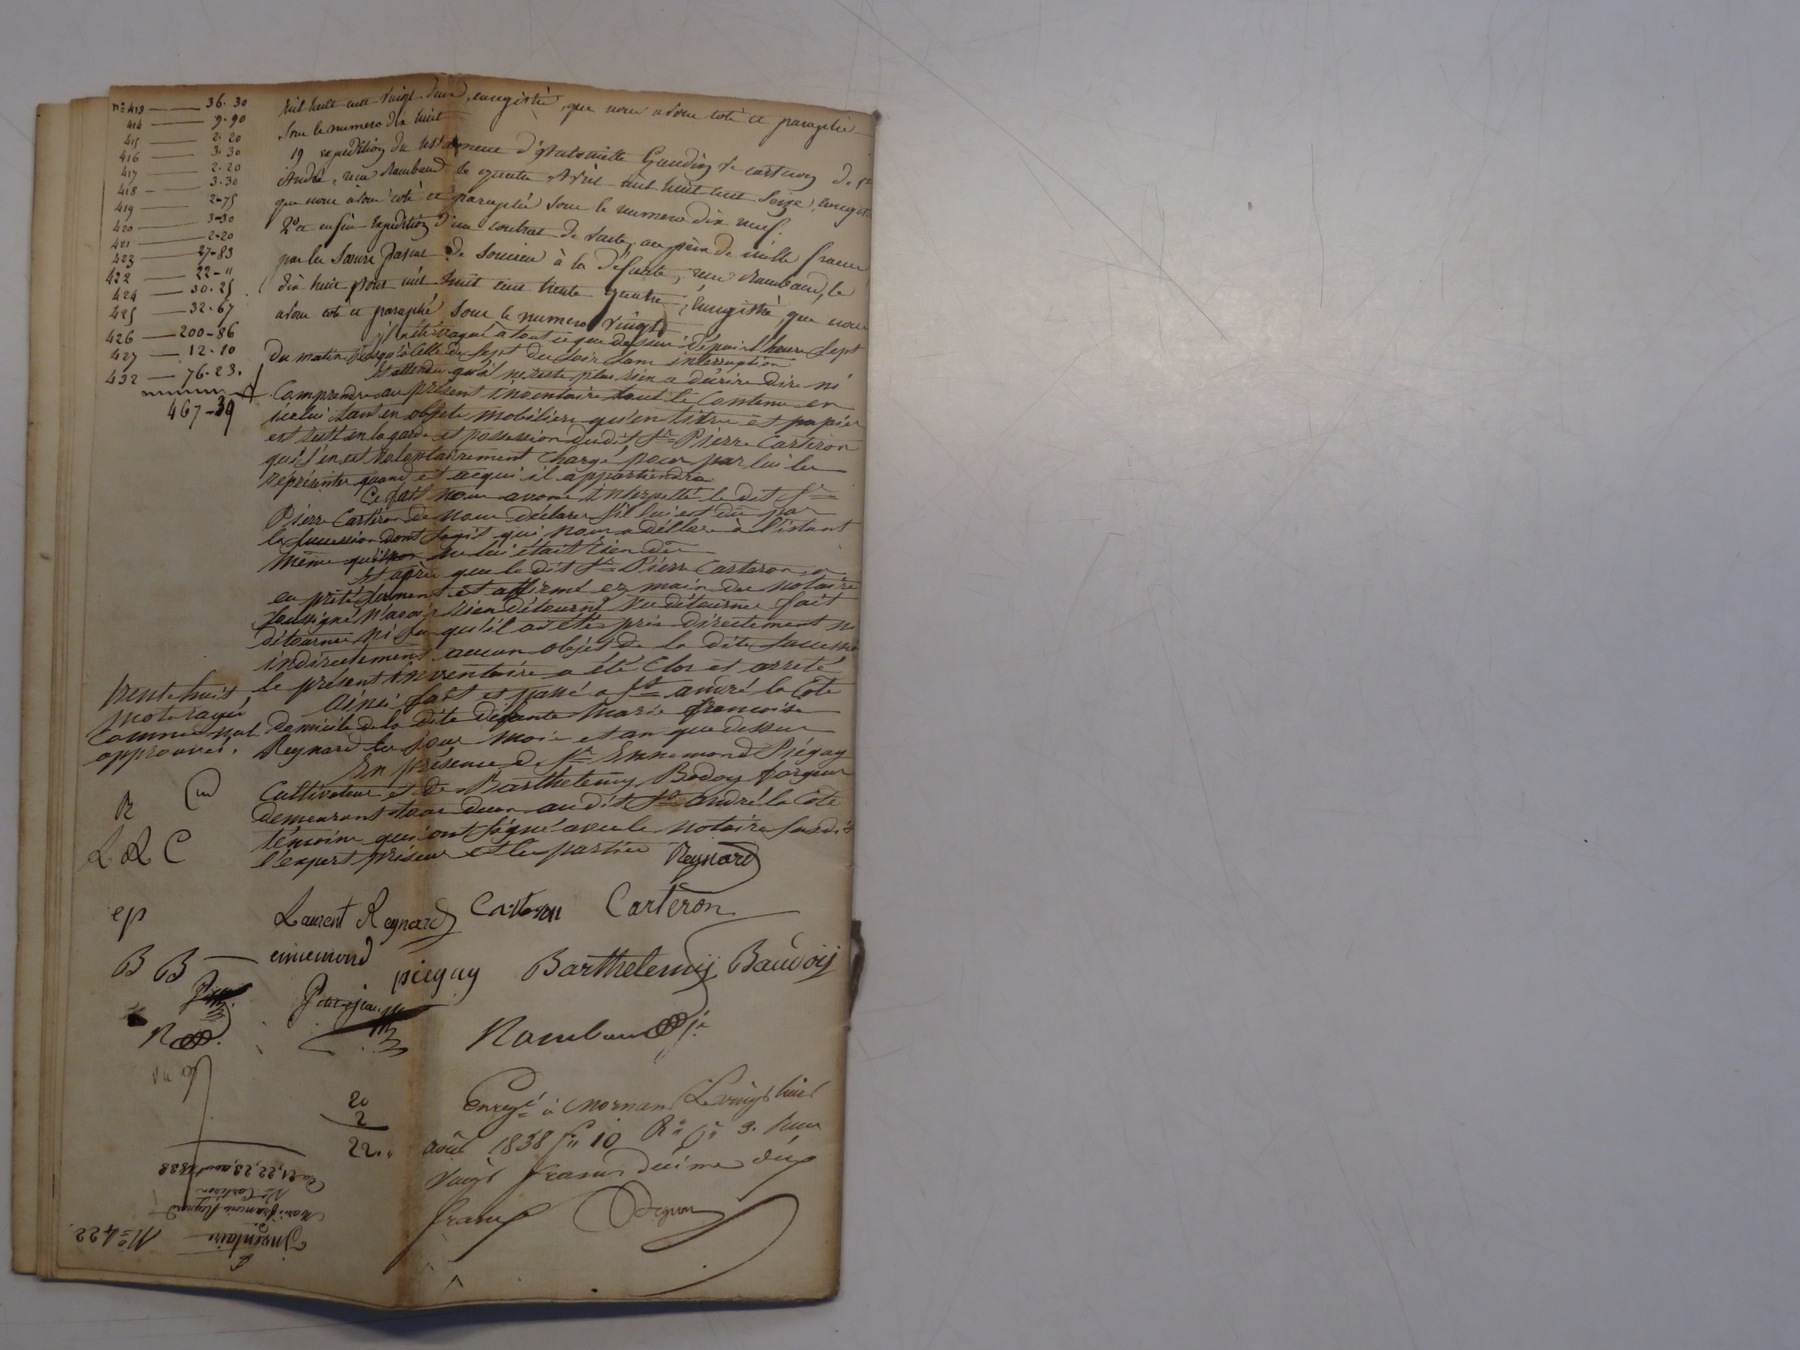 n° 413 — 36.30
414 — 9.90
415 — 2.20
416 — 3.30
417 — 2.20
418 — 3.30
419 — 2-75
420 — 3-30
421 — 2-20
423 — 27-83
422 — 22-"
424 — 30.25
425 — 32.67
426 — 200-86
427 — 12.10
432 — 76.23.
467-39
mil huit cent vingt deux, enregistré, que nous avons coté et paraphé
sous le numero dix huit
19 expédition du testament d'Antoinette Gaudin Ve carteron de St
André, veuve Rambaud le quatre Avril mil huit cent seize, enregistré
que nous avons coté et paraphé sous le numero dix neuf.
20 et enfin expédition d'un contrat de vente, au prix de mille francs
par les de Soucieu à la défunte, veuve Rambaud, le
dix huit mil huit cent trente quatre, enregistré, que nous
avons coté et paraphé sous le numero vingt
Il a été vaqué à tout ce que dessus depuis l'heure sept
du matin jusqu'à celle de sept du soir sans interruption
Et attendu qu'il ne reste plus rien a décrire dire ni
Comprendre au présent inventaire tout le Contenu en
icelui tant en objets mobiliers qu'en titres et papiers
est resté en la garde et possession dudit Sr Pierre Carteron
qui s'en est volontairement chargé pour par lui les
représenter quand et à qui il appartiendra
Ce fait nous avons interpellé le dit Sr
Pierre Carteron de nous déclarer s'il lui est dû par
la succession dont s'agit qui nous a déclaré à l'istant
même qu'il ne lui était rien dû
Et après que le dit Sr Pierre Carteron a
eu prêté serment et affirmé ez main du notaire
soussigné n'avoir rien détourné vu détourner fait
détourner ni su qu'il ait été pris directement ni
indirectement aucun objet de la dite succession
le présent inventaire a été Clos et arreté
Ainsi fait et passé a St andré la Côte
domicile de la dite défunte Marie françoise
Reynard les jour mois et an que dessus
En présence de Sr Ennemond Piégay
Cultivateur et de Barthelemy Badoy forgeur
demeurant tous deux au dit St andré la Côte
témoins qui ont signé avec le notaire susdit
l'expert priseur et les parties Reynard
trente huit
mots rayés
comme nul
approuvés.
R
L R C
Laurent Reynard Carteron Carteron
ep
ennemond
piegay Barthelemy Baudoy
B B
Rambaud
20
2
22.,
Enregé à Mornant le vingt huit
août 1838 f° 10 R° Ce 3. Reçu
vingt francs decime deux
francs
N° 422
Inventaire
de
Marie françoise Reynard
Ve Carteron
Du 21, 22, 23, août 1838